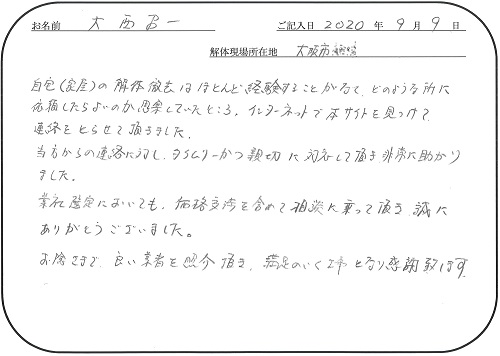 お名前 大西 一 ご記入日 2020 年 9 月 9 日
解体現場所在地 大阪市
自宅(空屋)の解体撤去はほとんど経験することがなく、どのような所に
依頼したらよいのか思案していたところ、インターネットで本サイトを見つけて
連絡をとらせて頂きました。
当方からの連絡に対し、タイムリーかつ親切に対応して頂き非常に助かり
ました。
業社選定においても、価格交渉を含めて相談に乗って頂き、誠に
ありがとうございました。
お陰さまで、良い業者を照介頂き、満足のいく工事となり感謝致します